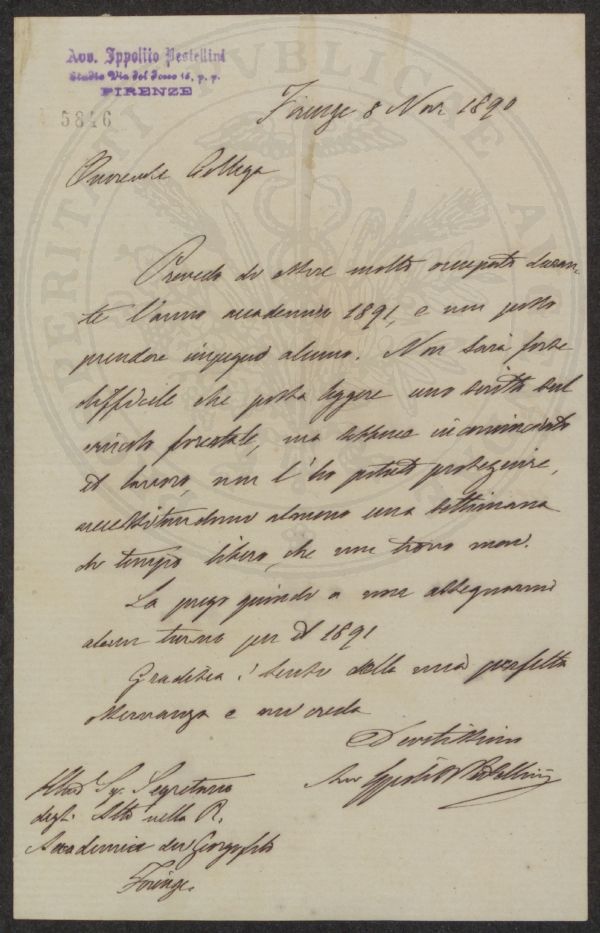 Avv. Ippolito Pestellini
Studio Via del Cocomero 16, p. p.
FIRENZE
5846
Firenze 8 Nov 1890
Onorevole Collega
Prevedo di essere molto occupato duran-
te l'anno accademico 1891, e non posso
prendere impegno alcuno. Non sarà forse
difficile che possa leggere uno scritto sul
vincolo forestale, ma sebbene incominciato
il lavoro, non l'ho potuto proseguire,
necessitandomi almeno una settimana
di tempo libero, che non trovo mai.
La prego quindi a non assegnarmi
alcun turno per il 1891
Gradisca i sensi della mia perfetta
osservanza e mi creda
Devotissimo
Avv Ippolito Pestellini
Sig. Segretario
degli Atti nella R.
Accademia dei Georgofili
Firenze.
PUBLICAE